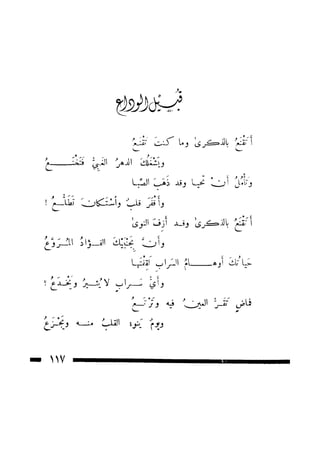 قبيل الوداع
أتقنعُ بالذكرى وما كنتَ تقنعُ
ويشغلكَ الدهرُ الغبيُّ فتخضعُ
وتأملُ أنْ تحيا وقد ذهبَ الصّبا
وأقفرَ قلبٌ واستكانَ تطلّعُ ؟
أتقنعُ بالذكرى وقد أزفَ النوى
وأنَّ بجنبيكَ الفؤادُ المُروَّعُ
حياتكَ أوهامُ السّرابِ
وأيُّ سرابٍ لا يُثيرُ ويخدعُ ؟
فماضٍ تقرُّ العينُ فيه وترتعُ
ويومٌ ينوءُ القلبُ منه ويجزعُ
١١٧